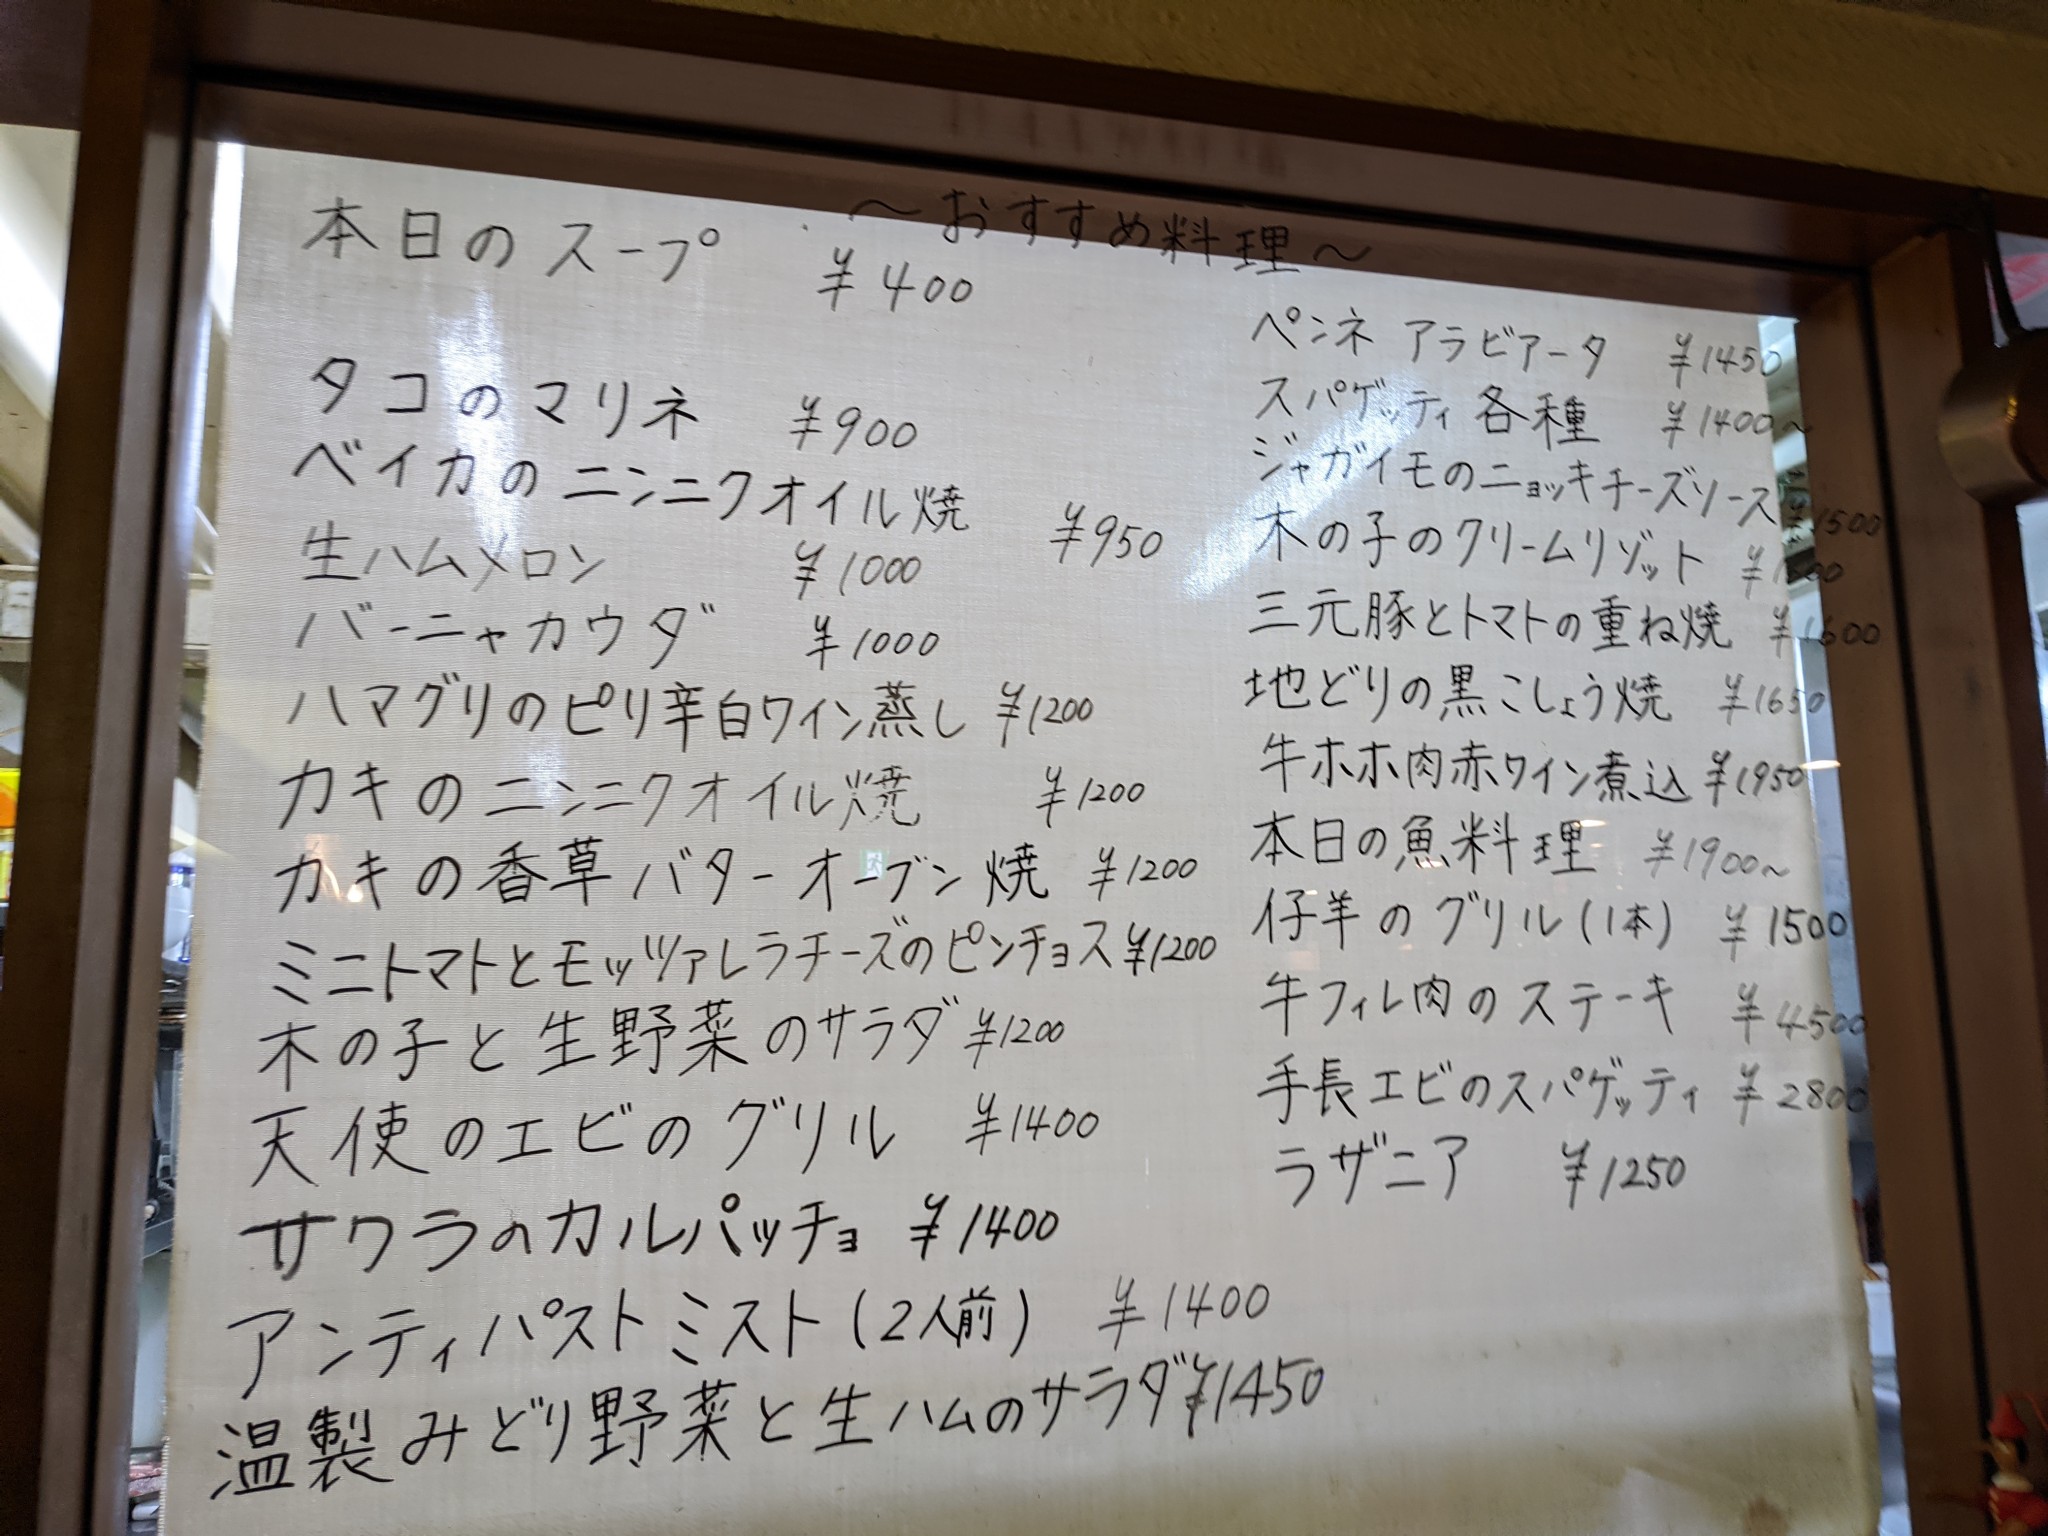 ～おすすめ料理～
本日のスープ ¥400
タコのマリネ ¥900
ベイカのニンニクオイル焼 ¥950
生ハムメロン ¥1000
バーニャカウダ ¥1000
ハマグリのピリ辛白ワイン蒸し ¥1200
カキのニンニクオイル焼 ¥1200
カキの香草バターオーブン焼 ¥1200
ミニトマトとモッツァレラチーズのピンチョス ¥1200
木の子と生野菜のサラダ ¥1200
天使のエビのグリル ¥1400
サワラのカルパッチョ ¥1400
アンティパストミスト(2人前) ¥1400
温製みどり野菜と生ハムのサラダ ¥1450
ペンネ アラビアータ ¥1450
スパゲッティ各種 ¥1400～
ジャガイモのニョッキチーズソース ¥1500
木の子のクリームリゾット
三元豚とトマトの重ね焼 ¥1600
地どりの黒こしょう焼 ¥1650
牛ホホ肉赤ワイン煮込 ¥1950
本日の魚料理 ¥1900～
仔羊のグリル(1本) ¥1500
牛フィレ肉のステーキ ¥4500
手長エビのスパゲッティ ¥2800
ラザニア ¥1250